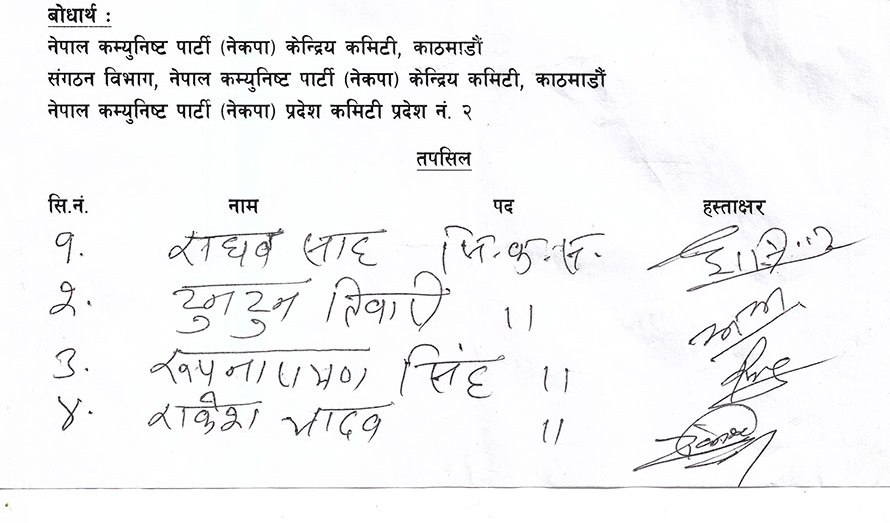 बोधार्थ :
नेपाल कम्युनिष्ट पार्टी (नेकपा) केन्द्रिय कमिटी, काठमाडौं
संगठन विभाग, नेपाल कम्युनिष्ट पार्टी (नेकपा) केन्द्रिय कमिटी, काठमाडौं
नेपाल कम्युनिष्ट पार्टी (नेकपा) प्रदेश कमिटी प्रदेश नं. २
तपसिल
सि.नं. नाम पद हस्ताक्षर
१. राघव साह जि.क.स.
२. टुनटुन तिवारी "
३. रुपनारायण सिंह "
४. राकेश यादव "